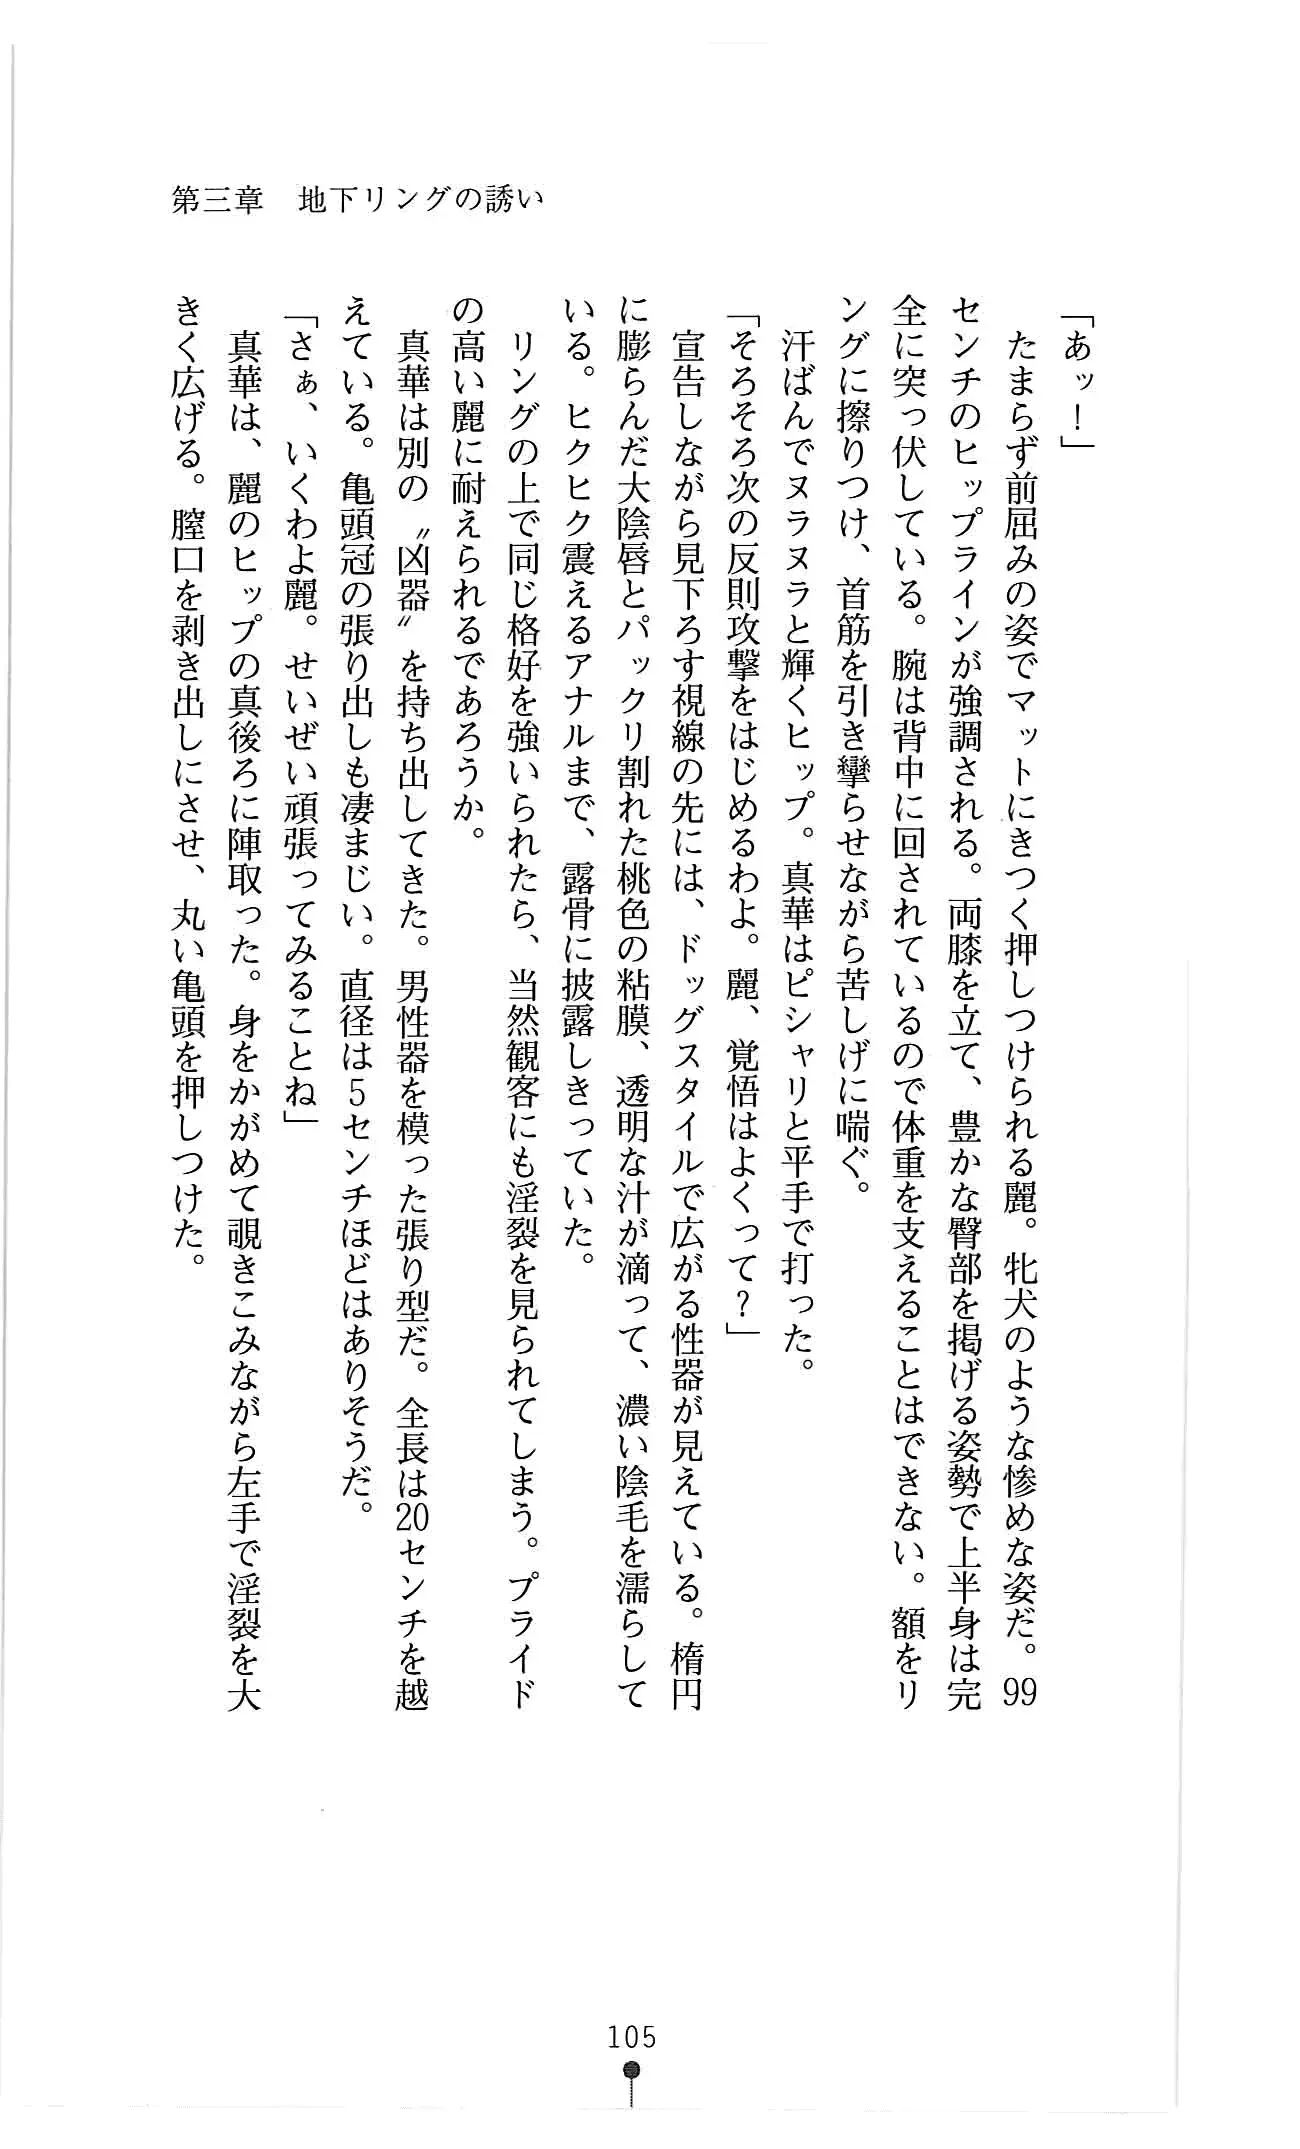 第三章　地下リングの誘い
「あッ！」
　たまらず前屈みの姿でマットにきつく押しつけられる麗。牝犬のような惨めな姿だ。99
センチのヒップラインが強調される。両膝を立て、豊かな臀部を掲げる姿勢で上半身は完
全に突っ伏している。腕は背中に回されているので体重を支えることはできない。額をリ
ングに擦りつけ、首筋を引き攣らせながら苦しげに喘ぐ。
　汗ばんでヌラヌラと輝くヒップ。真華はピシャリと平手で打った。
「そろそろ次の反則攻撃をはじめるわよ。麗、覚悟はよくって？」
　宣告しながら見下ろす視線の先には、ドッグスタイルで広がる性器が見えている。楕円
に膨らんだ大陰唇とパックリ割れた桃色の粘膜、透明な汁が滴って、濃い陰毛を濡らして
いる。ヒクヒク震えるアナルまで、露骨に披露しきっていた。
　リングの上で同じ格好を強いられたら、当然観客にも淫裂を見られてしまう。プライド
の高い麗に耐えられるであろうか。
　真華は別の〝凶器〟を持ち出してきた。男性器を模った張り型だ。全長は20センチを越
えている。亀頭冠の張り出しも凄まじい。直径は5センチほどはありそうだ。
「さぁ、いくわよ麗。せいぜい頑張ってみることね」
　真華は、麗のヒップの真後ろに陣取った。身をかがめて覗きこみながら左手で淫裂を大
きく広げる。膣口を剥き出しにさせ、丸い亀頭を押しつけた。
105